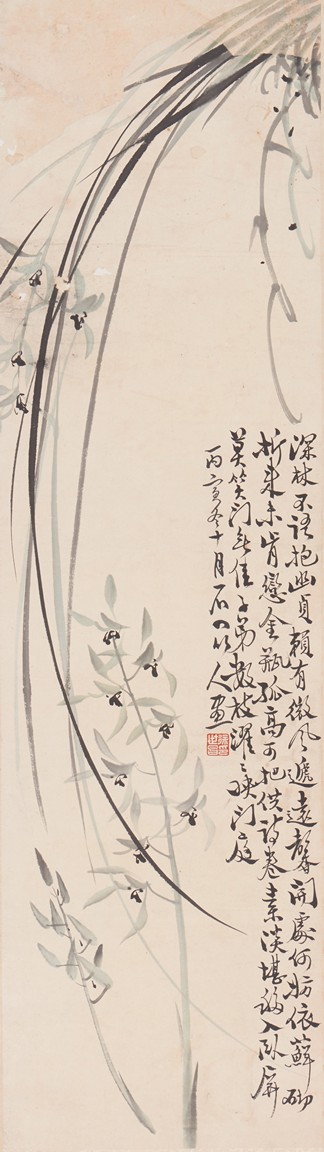 深林不語抱幽貞賴有微風遞遠馨開處何妨依蘚砌
折來未肯戀金瓶孤高可挹供詩卷素淡堪移入臥屏
莫笑門無佳子弟數枝濯濯映門庭
丙寅冬十月石 人畫